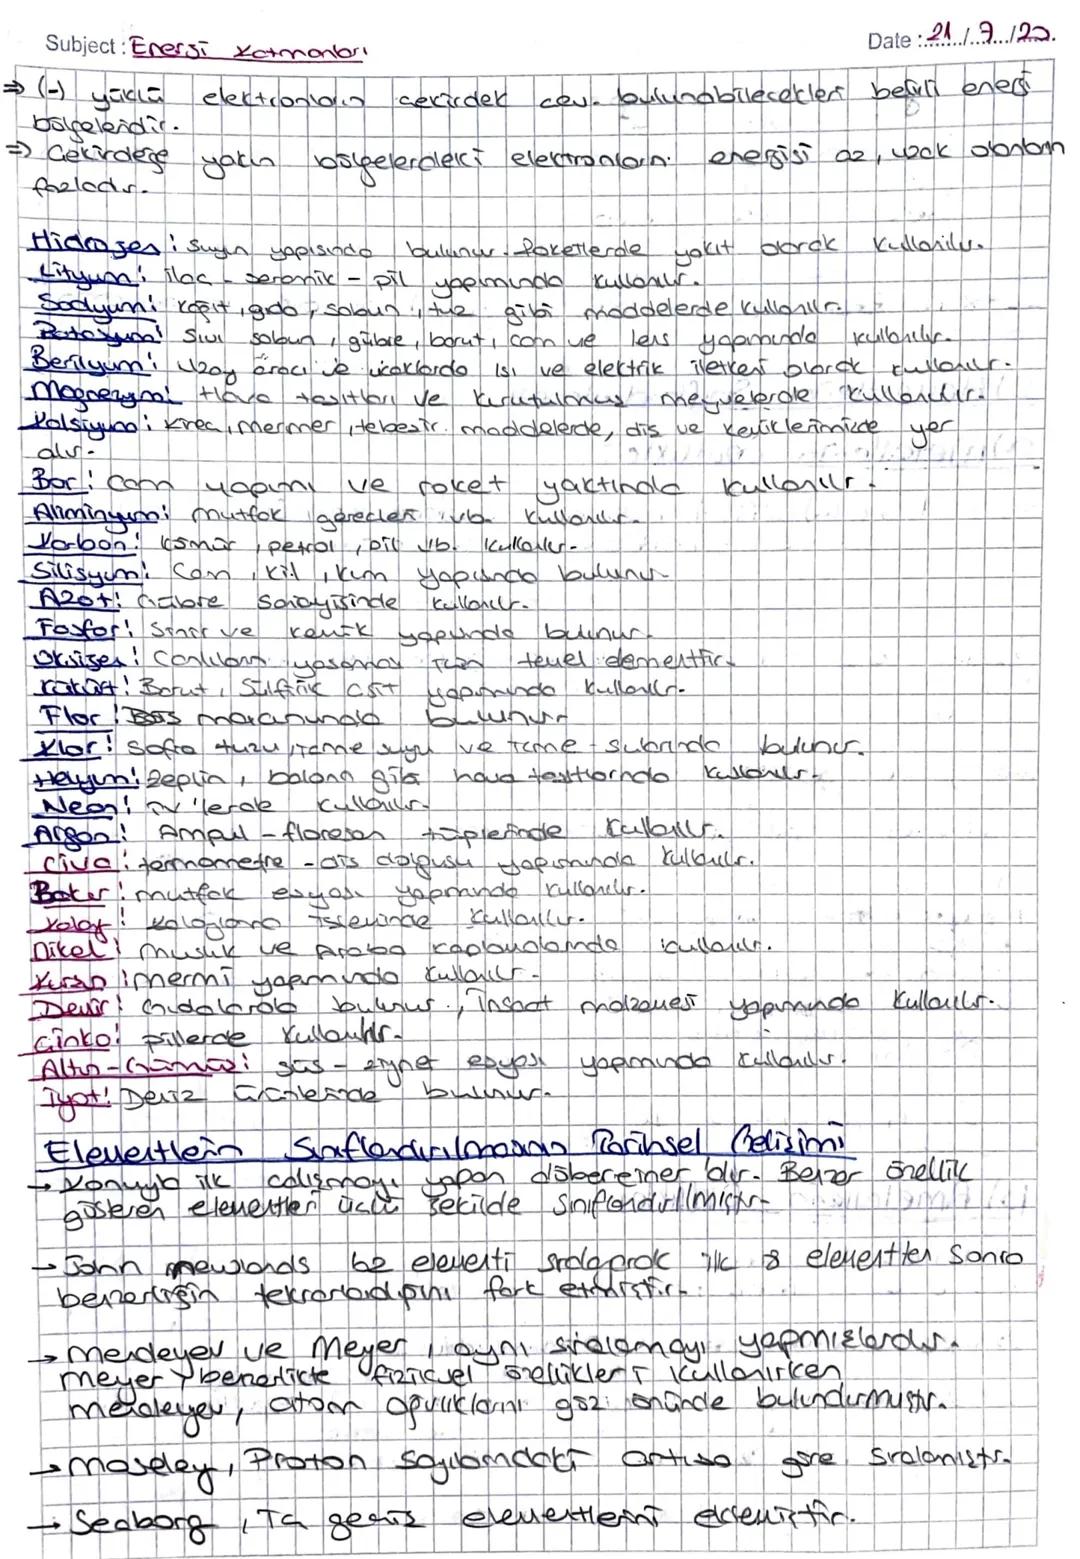 Subject: Enerji Katmanları
Date: 21/9/20.
⇒ (-) yüklü elektronların çekirdek çev. bulunabilecekleri belirli enerji
bölgeleridir.
⇒ Çekirdeğe yakın bölgelerdeki elektronların enerjisi az, uzak olanların
fazladır.
Hidrojen: Suyun yapısında bulunur. Roketlerde yakıt olarak kullanılır.
Lityum: ilaç - seramik - pil yapımında kullanılır.
Sodyum: Kağıt, gıda, sabun, tuz gibi maddelerde kullanılır.
Potasyum: Sıvı sabun, gübre, barut, cam ve lens yapımında kullanılır.
Berilyum: Uzay aracı ve uçaklarda ısı ve elektrik iletkeni olarak kullanılır.
Magnezyum: Hava taşıtları ve kurutulmuş meyvelerde kullanılır.
Kalsiyum: Kireç, mermer, tebeşir maddelerde, diş ve kemiklerimizde yer
alır.
Bor: Cam yapımı ve roket yakıtında kullanılır.
Alüminyum: mutfak gereçleri vb. kullanılır.
Karbon: Kömür, petrol, pil vb. kullanılır.
Silisyum: Cam, kil, kum yapısında bulunur.
Azot: Gübre sanayisinde kullanılır.
Fosfor: Sinir ve kemik yapısında bulunur.
Oksijen: Canlıların yaşaması için temel elementtir.
Kükürt: Barut, Sülfirik asit yapımında kullanılır.
Flor: Diş macununda bulunur
Klor: Sofra tuzu, içme suyu ve içme subında bulunur.
Helyum: Zeplin, balon gibi hava taşıtlarında kullanılır.
Neon: TV'lerde kullanılır.
Argon: Ampul - floresan tüplerinde kullanılır.
Civa: termometre - diş dolgusu yapısımında kullanılır.
Bakır: mutfak eşyası yapımında kullanılır.
Kalay: kalaylama işleminde kullanılır.
Nikel: Musluk ve Araba kaplamalarında kullanılır.
Kurşun: mermi yapımında kullanılır.
Demir: Gıdalarda bulunur, inşaat malzemesi yapımında kullanılır.
Çinko: pillerde kullanılır.
Altın-Gümüş: süs - ziynet eşyası yapımında kullanılır.
İyot: Deniz ürünlerinde bulunur.
Elementlerin Sınıflandırılmasının Tarihsel Gelişimi
→ Konuyla ilk çalışmayı yapan döbereiner'dır. Benzer özellik
gösteren elementleri üçlü şekilde sınıflandırılmıştır.
→ John newlands 62 elementi sıralayarak ilk 8 elementten sonra
benzerliğin tekrarlandığını fark etmiştir.
→ Mendeleyev ve Meyer, aynı sıralamayı yapmışlardır.
Meyer benzerlikte fiziksel özellikleri kullanırken
Mendeleyev, atom ağırlıklarını göz önünde bulundurmuştur.
→ Moseley, Proton sayılarındaki artışa göre sıralamıştır.
→ Seaborg, iç geçiş elementlerini eklemiştir.